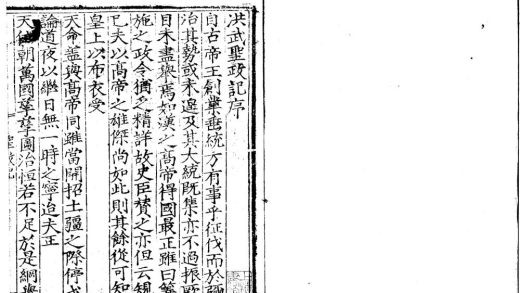 洪武聖政記序
自古帝王創業垂統方有事乎征伐而於疆
治其勢或未遑及其大統既集亦不過振
目未盡舉焉如漢之高帝得國最正雖曰
施之政令猶乏精詳故史臣贊之亦但云規
已夫以高帝之雄傑尚如此則其餘從可知
皇上以布衣受
天命蓋與高帝同雖當開招土疆之際停
論道夜以繼日無一時之寧迨夫正
天位朝萬國孳孳圖治恒若不足於是綱
聖政記